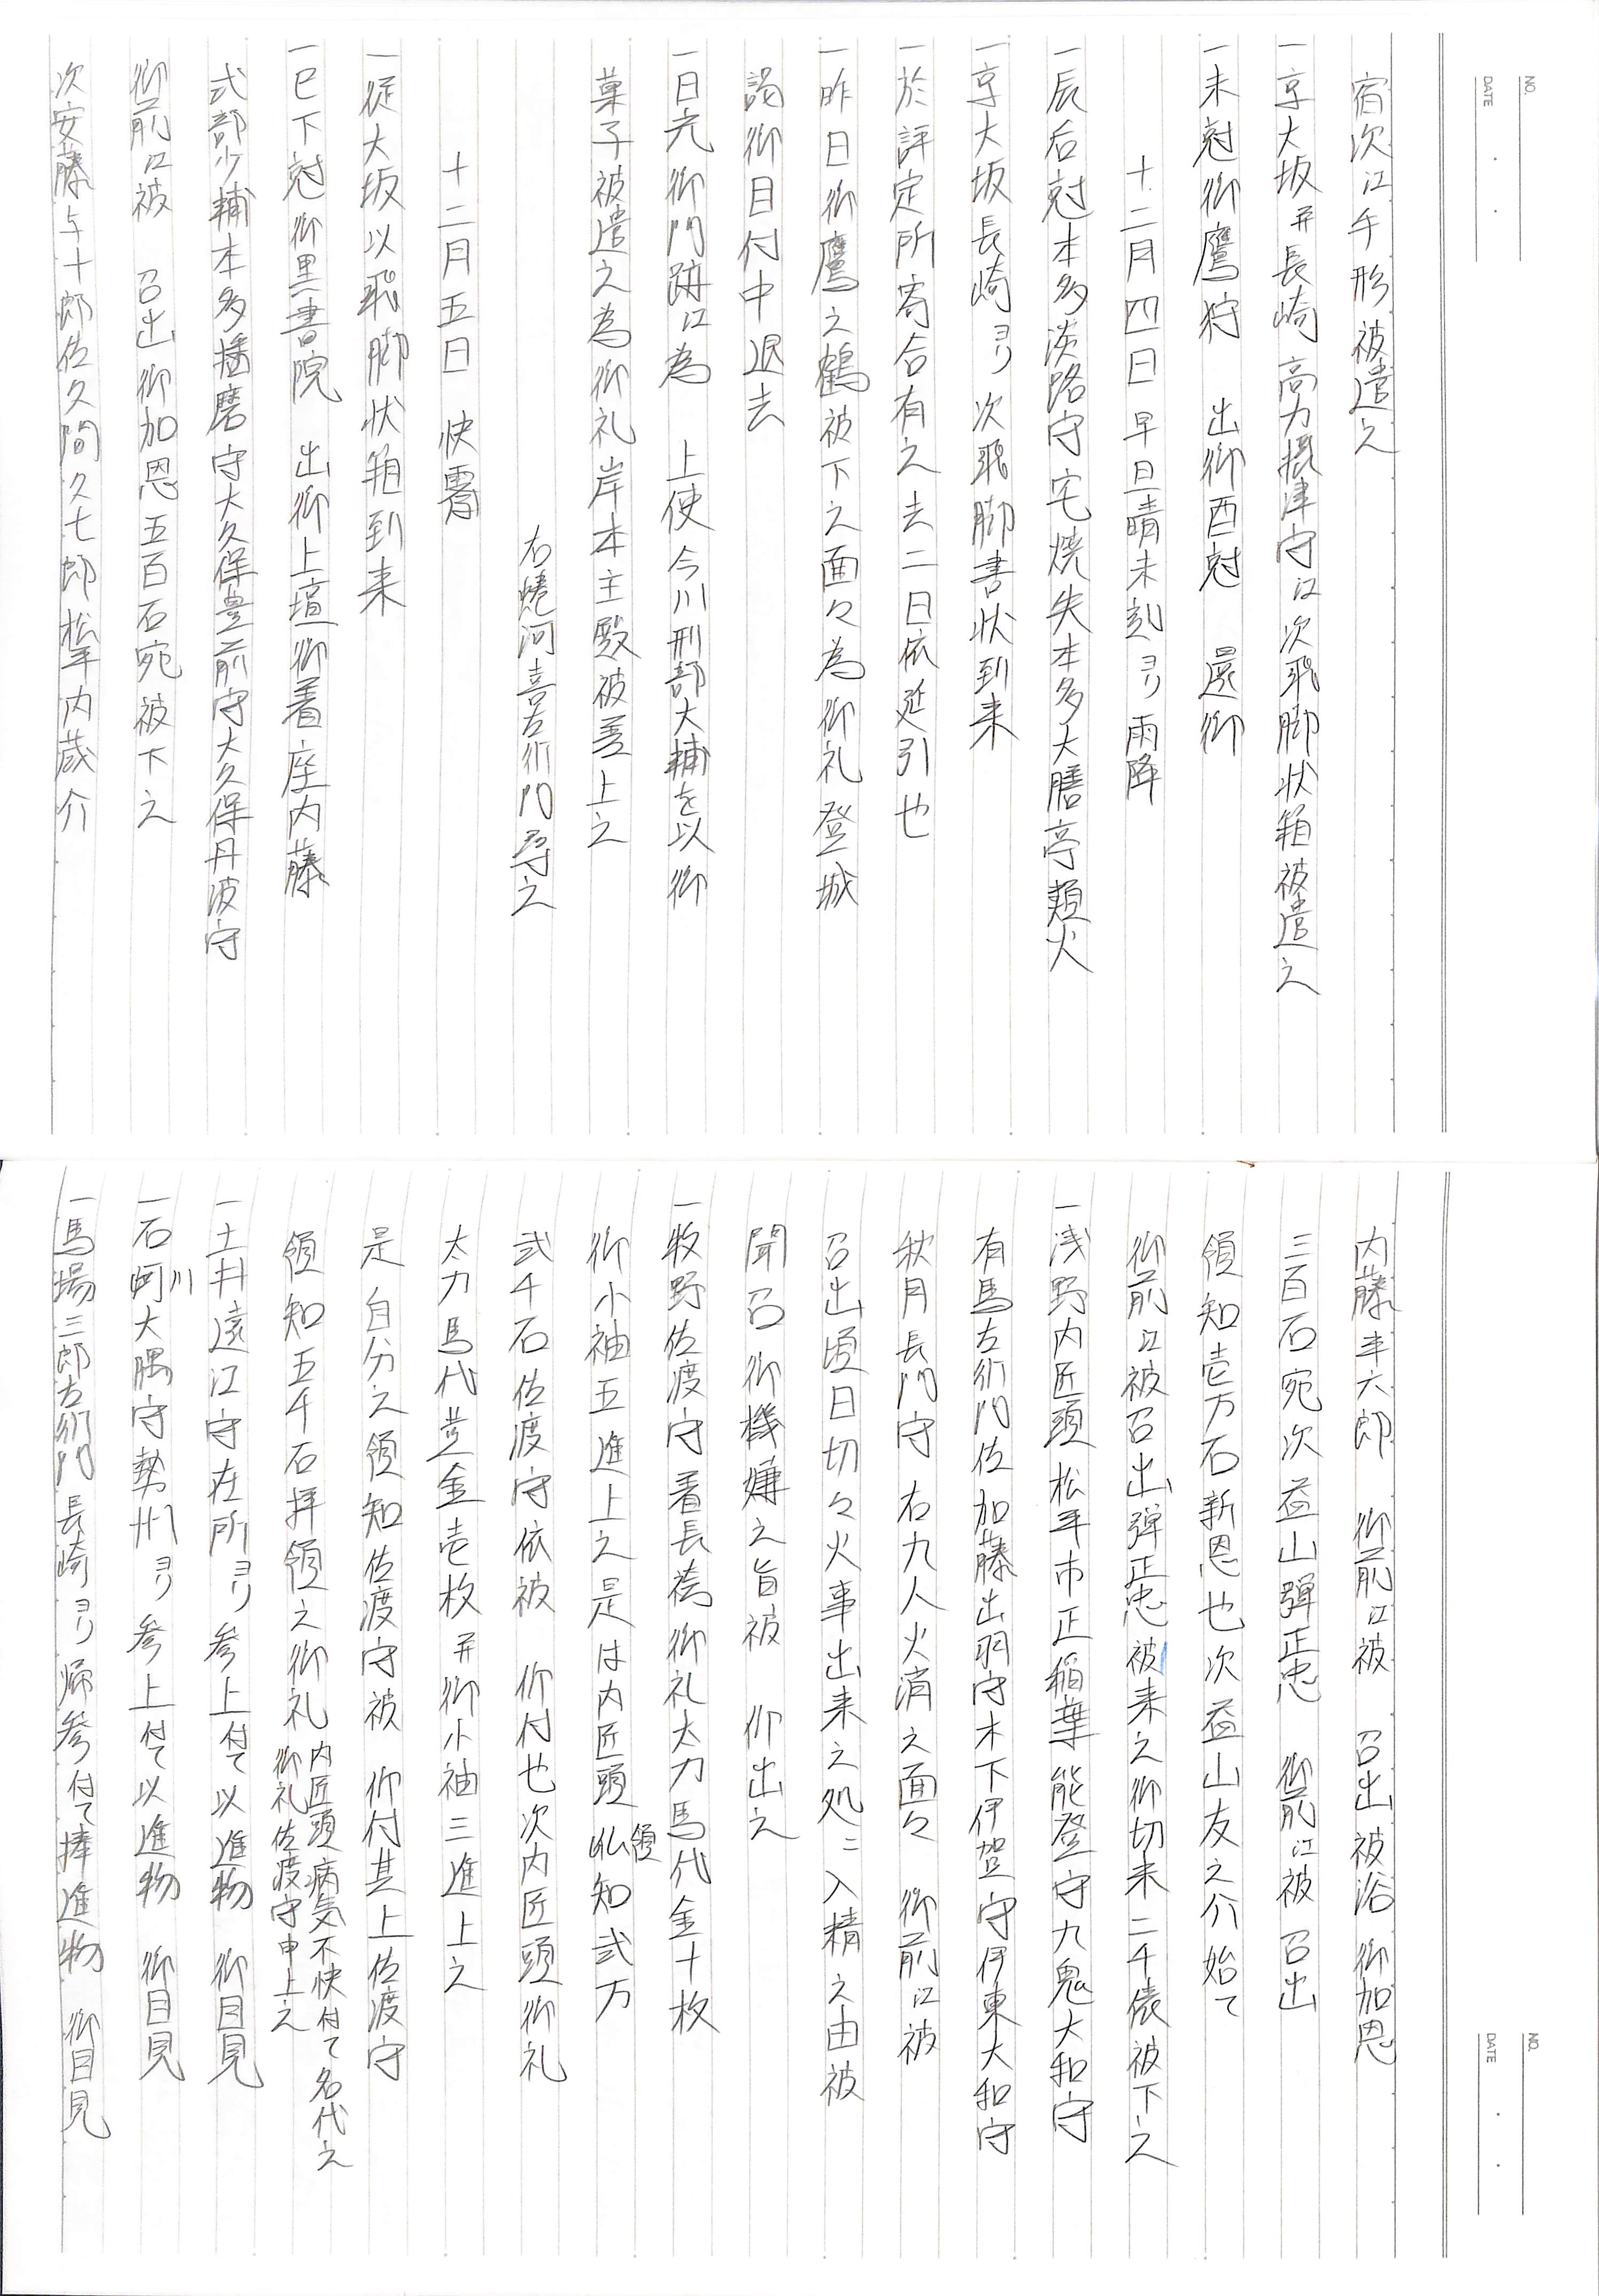 NO.
DATE
宿次江手形被遣之
一京大坂并長崎高力摂津守江次飛脚状箱被遣之
未尅御鷹狩　出御酉尅　還御
十二月四日　早旦晴未刻ヨリ雨降
一辰后尅本多淡路守宅焼失本多大膳亭類火
一京大坂長崎ヨリ次飛脚書状到来
一於評定所寄合有之去二日依延引也
一昨日御鷹之鶴被下之面々為御礼登城
謁御目付中退去
一日光御門跡江為　上使今川刑部大輔を以御
菓子被遣之為御礼岸本主殿被差上之
右蜷河喜左衛門尋之
十二月五日　快霽
一従大坂以飛脚状箱到来
一巳下尅御黒書院　出御上壇御着座内藤
式部少輔本多播磨守大久保豊前守大久保丹波守
御前江被　召出御加恩五百石宛被下之
次安藤与十郎佐久間久七郎松平内蔵介
NO.
DATE
内藤半六郎　御前江被　召出被浴　御加恩
三百石宛次益山弾正忠　御前江被　召出
領知壱万石新恩也次益山友之介始て
御前江被召出弾正忠被来之御切米二千俵被下之
一浅野内匠頭松平市正稲葉能登守九鬼大和守
有馬左衛門佐加藤出羽守木下伊賀守伊東大和守
秋月長門守右九人火消之面々　御前江被
召出頃日切々火事出来之処ニ入精之由被
聞召御機嫌之旨被　仰出之
一牧野佐渡守着長袴御礼太刀馬代金十枚
御小袖五進上之是は内匠頭領知弐万
弐千石佐渡守依被　仰付也次内匠頭御礼
太刀馬代黄金壱枚并御小袖三進上之
是自分之領知佐渡守被　仰付其上佐渡守
領知五千石拝領之御礼内匠頭病気不快付て名代之
御礼佐渡守申上之
一土井遠江守在所ヨリ参上付て以進物　御目見
一石川大隅守勢州ヨリ参上付て以進物　御目見
一馬場三郎左衛門長崎ヨリ帰参付て捧進物　御目見